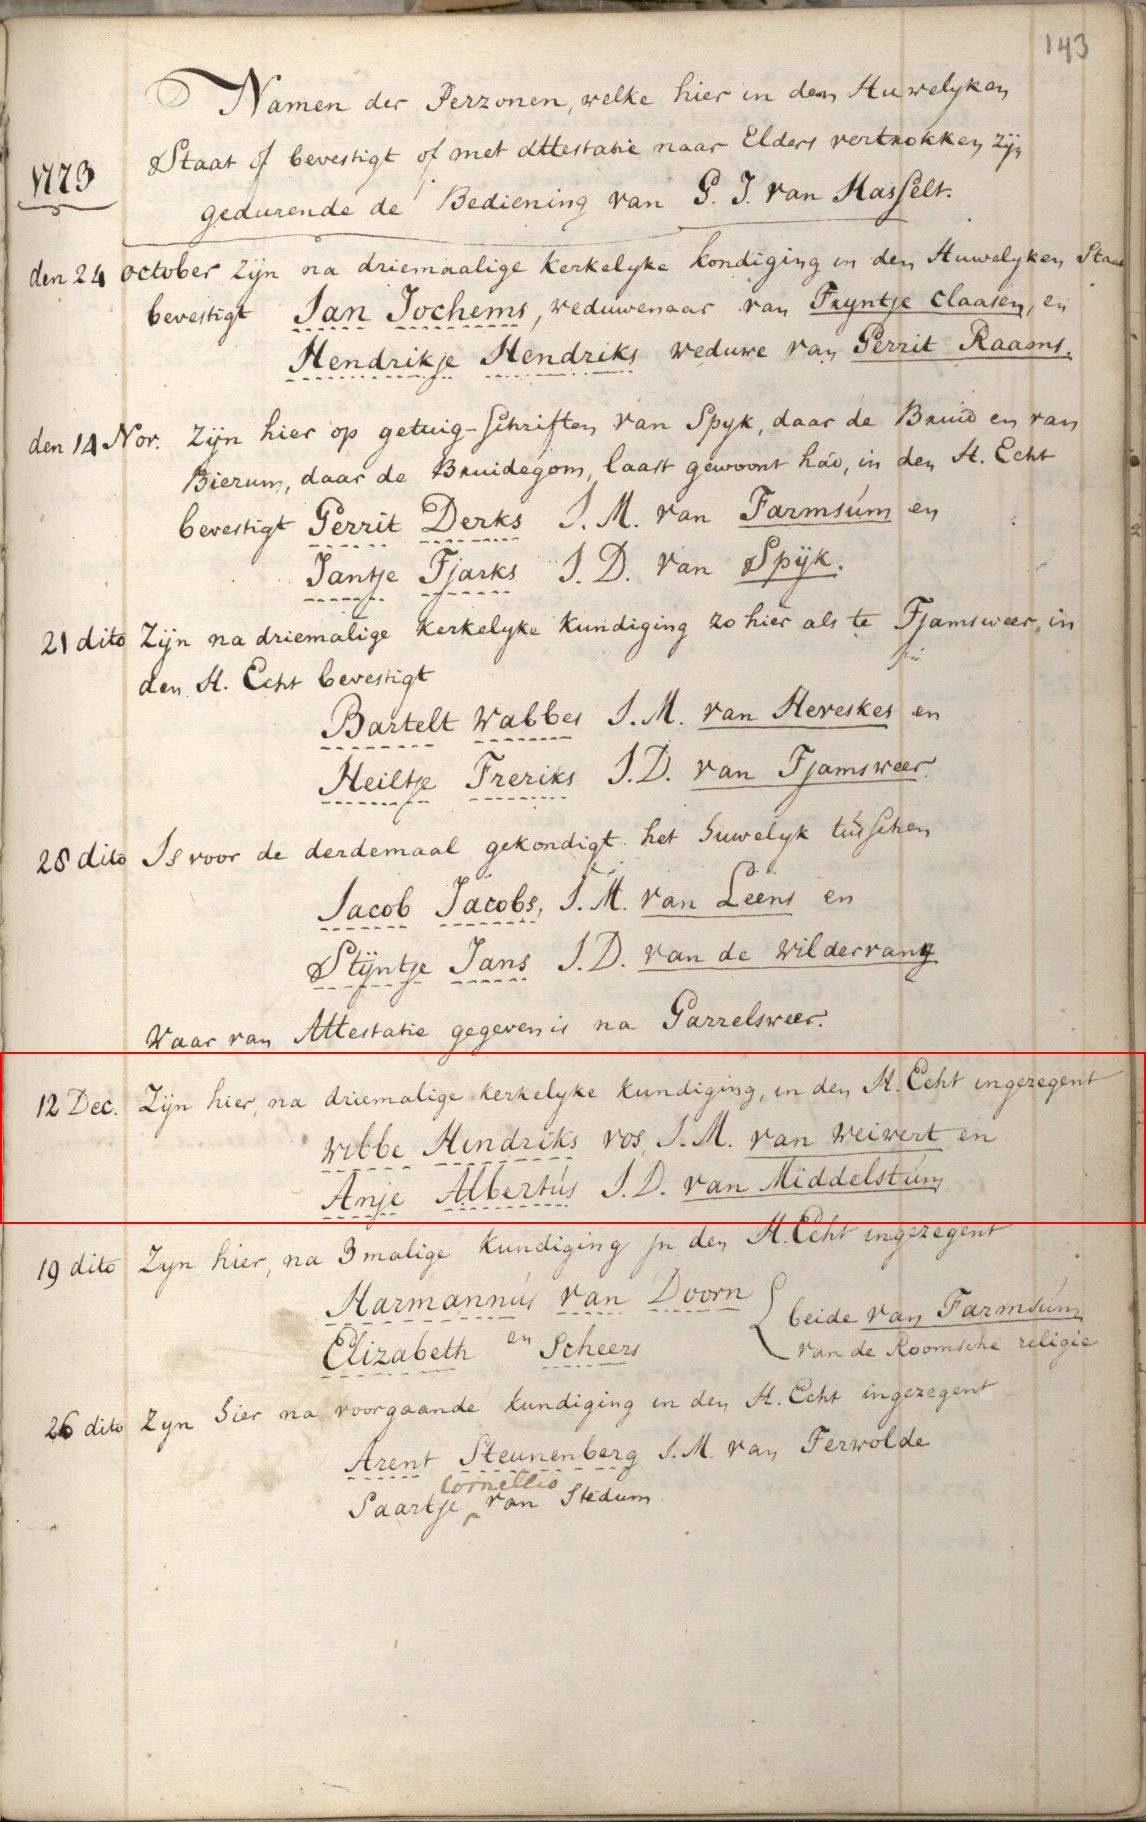 143
Namen der Perzonen, welke hier in den Huwelyken
1773
Staat of bevestigt of met Attestatie naar Elders vertrokken zijn
gedurende de Bediening van G. J. van Hasselt.
den 24 october zijn na driemaalige kerkelyke kondiging in den Huwelyken Staat
bevestigt Jan Jochems, weduwenaar van Tryntje Claasen, en
Hendrikje Hendriks weduwe van Gerrit Raams.
den 14 Nov. Zijn hier op getuig-Schriften van Spyk, daar de Bruid en van
Bierum, daar de Bruidegom, laast gewoont had, in den H. Echt
bevestigt Gerrit Derks J. M. van Farmsúm en
Jantje Tjarks J. D. van Spijk.
21 dito Zijn na driemalige kerkelyke kundiging zo hier als te Tjamsweer, in
den H. Echt bevestigt
Bartelt Wabbes J. M. van Heveskes en
Heiltje Freriks J. D. van Tjamsweer.
28 dito Is voor de derdemaal gekondigt het huwelyk tússchen
Jacob Jacobs, J. M. van Leens en
Stijntje Jans J. D. van de Wildervang
Waar van Attestatie gegeven is na Garrelsweer.
12 Dec. Zijn hier, na driemalige kerkelyke kundiging, in den H. Echt ingezegent
Wibbe Hindriks vos J. M. van Weiwert en
Anje Albertús J. D. van Middelstúm
19 dito Zyn hier, na 3malige kundiging in den H. Echt ingezegent
Harmannús van Doorn
en
Elizabeth Scheers
beide van Farmsúm
van de Roomsche religie
26 dito Zyn hier na voorgaande kundiging in den H. Echt ingezegent
Arent Steunenberg J. M. van Terwolde
Cornellis
Saartje van Stedum